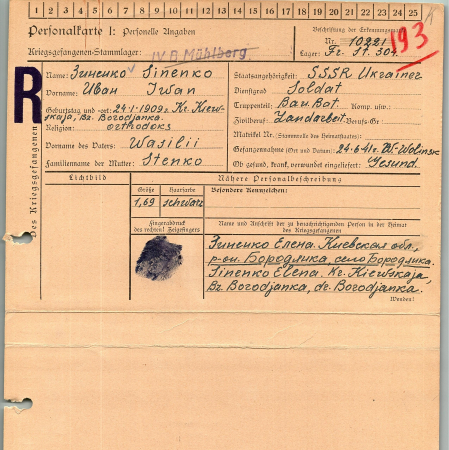 1 2 3 4 5 6 7 8 9 10 11 12 13 14 15 16 17 18 19 20 21 22 23 24 25
Personalkarte I: Personelle Angaben
Kriegsgefangenen-Stammlager: IV B Mühlberg
Beschriftung der Erkennungsmarke
Nr. 10221
Lager: Fr. St. 304
193
R
Des Kriegsgefangenen
Name: Зиненко Sinenko
Vorname: Иван Iwan
Geburtstag und -ort: 24.1.1909, Kr. Kiew-
skaja, Bz. Borodjanka.
Religion: orthodoks
Vorname des Vaters: Wasilii
Familienname der Mutter: Stenko
Staatsangehörigkeit: SSSR Ukrainer
Dienstgrad: Soldat
Truppenteil: Bau. Bat. Komp. usw.:
Zivilberuf: Landarbeit Berufs-Gr.:
Matrikel Nr. (Stammrolle des Heimatstaates):
Gefangennahme (Ort und Datum): 24.6.41 Wl. Wolinsk
Ob gesund, krank, verwundet eingeliefert: Gesund.
Lichtbild
Nähere Personalbeschreibung
Größe Haarfarbe Besondere Kennzeichen:
1,69 schwarz
Fingerabdruck
des rechten! Zeigefingers
Name und Anschrift der zu benachrichtigenden Person in der Heimat
des Kriegsgefangenen
Зиненко Елена. Киевская обл.,
р-он. Бородянка, село Бородянка.
Sinenko Elena. Kr. Kiewskaja,
Bz. Borodjanka, dr. Borodjanka.
Wenden!